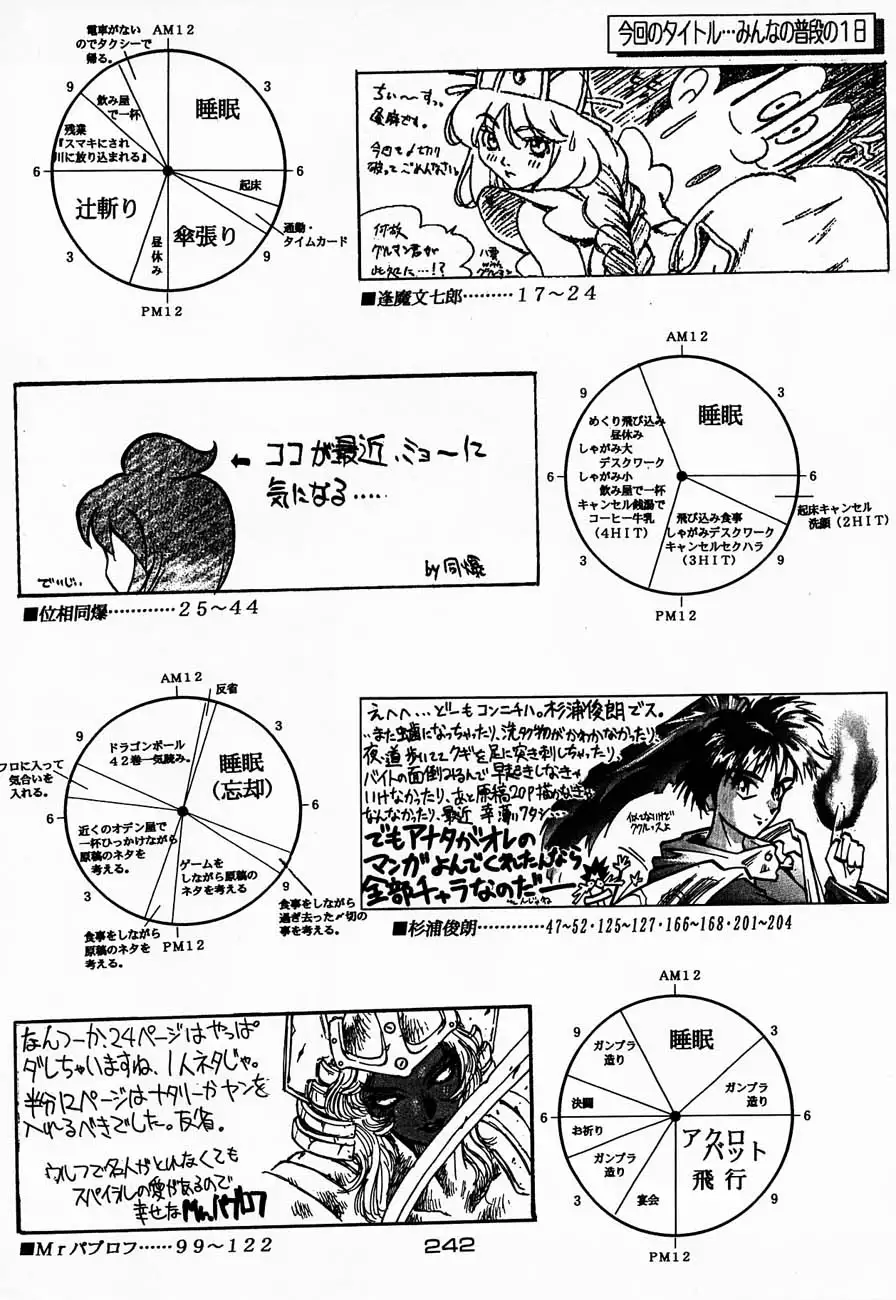 今回のタイトル…みんなの普段の1日
AM12
3
6
9
PM12
3
6
9
睡眠
起床
通勤・
タイムカード
傘張り
昼休み
辻斬り
残業
『スマキにされ
川に放り込まれる』
飲み屋
で一杯
電車がない
のでタクシーで
帰る。
ちぃ〜すっ。
今回〆切り
破ってごめんなさい。
何故、
グルマン君が
此処に…!?
■逢魔文七郎………17〜24
ココが最近、ミョーに
気になる……
でいじい
by同爆
■位相同爆…………25〜44
AM12
3
6
9
PM12
3
6
9
睡眠
起床キャンセル
洗顔(2HIT)
飛び込み食事
しゃがみデスクワーク
キャンセルセクハラ
(3HIT)
めくり飛び込み
昼休み
しゃがみ大
デスクワーク
しゃがみ小
飲み屋で一杯
キャンセル銭湯で
コーヒー牛乳
(4HIT)
AM12
3
6
9
PM12
3
6
反省
睡眠
(忘却)
食事をしながら
過ぎ去った〆切の
事を考える。
ゲームを
しながら原稿の
ネタを考える
食事をしながら
原稿のネタを
考える。
近くのオデン屋で
一杯ひっかけながら
原稿のネタを
考える。
フロに入って
気合いを
入れる。
ドラゴンボール
42巻一気読み。
えへへ…どーもコンニチハ。杉浦俊朗でス。
…また虫歯になっちゃったり、洗タク物がかわかなかったり、
夜、道歩いててクギを足に突き刺しちゃったり、
バイトの面倒みるんで早起きしなきゃ
いけなかったり、あと原稿20P描かなきゃ
なんなかったり、最近 幸薄いワタシ…
でもアナタがオレの
マンガよんでくれたんなら
全部チャラなのだー
似てないけど
ククルッスよ
■杉浦俊朗…………47~52・125~127・166~168・201~204
なんつーか、24ページはやっぱ
ダレちゃいますね、1人ネタじゃ。
半分12ページはナタリーかヤンを
入れるべきでした。反省。
ウルフで名人がとれなくても
スパイラルの愛があるので
幸せなMr.パブロフ
■Mrパブロフ……99〜122
AM12
3
6
9
PM12
3
6
9
睡眠
ガンプラ
造り
アクロ
バット
飛行
宴会
ガンプラ
造り
お祈り
決闘
ガンプラ
造り
242